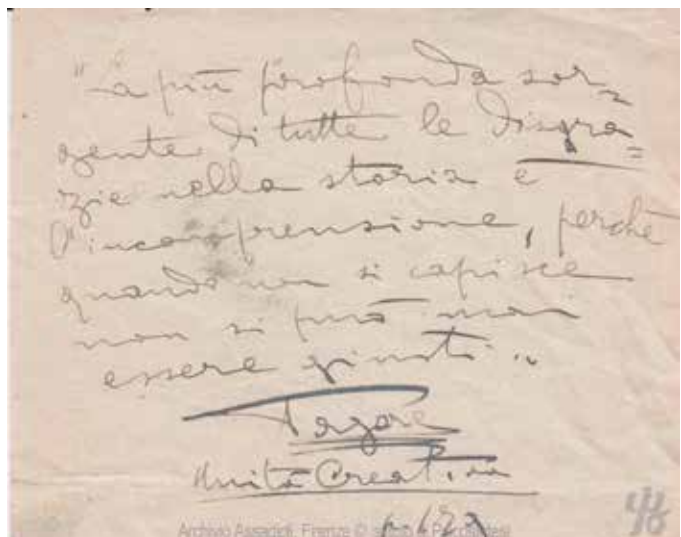 "La più profonda sor=
gente di tutte le disgra=
zie nella storia è
l'incomprensione, perchè
quando non si capisce
non si può mai
essere giusti..
Tagore
Unità Creativa
p. 129
Archivio Assagioli, Firenze © Istituto di Psicosintesi